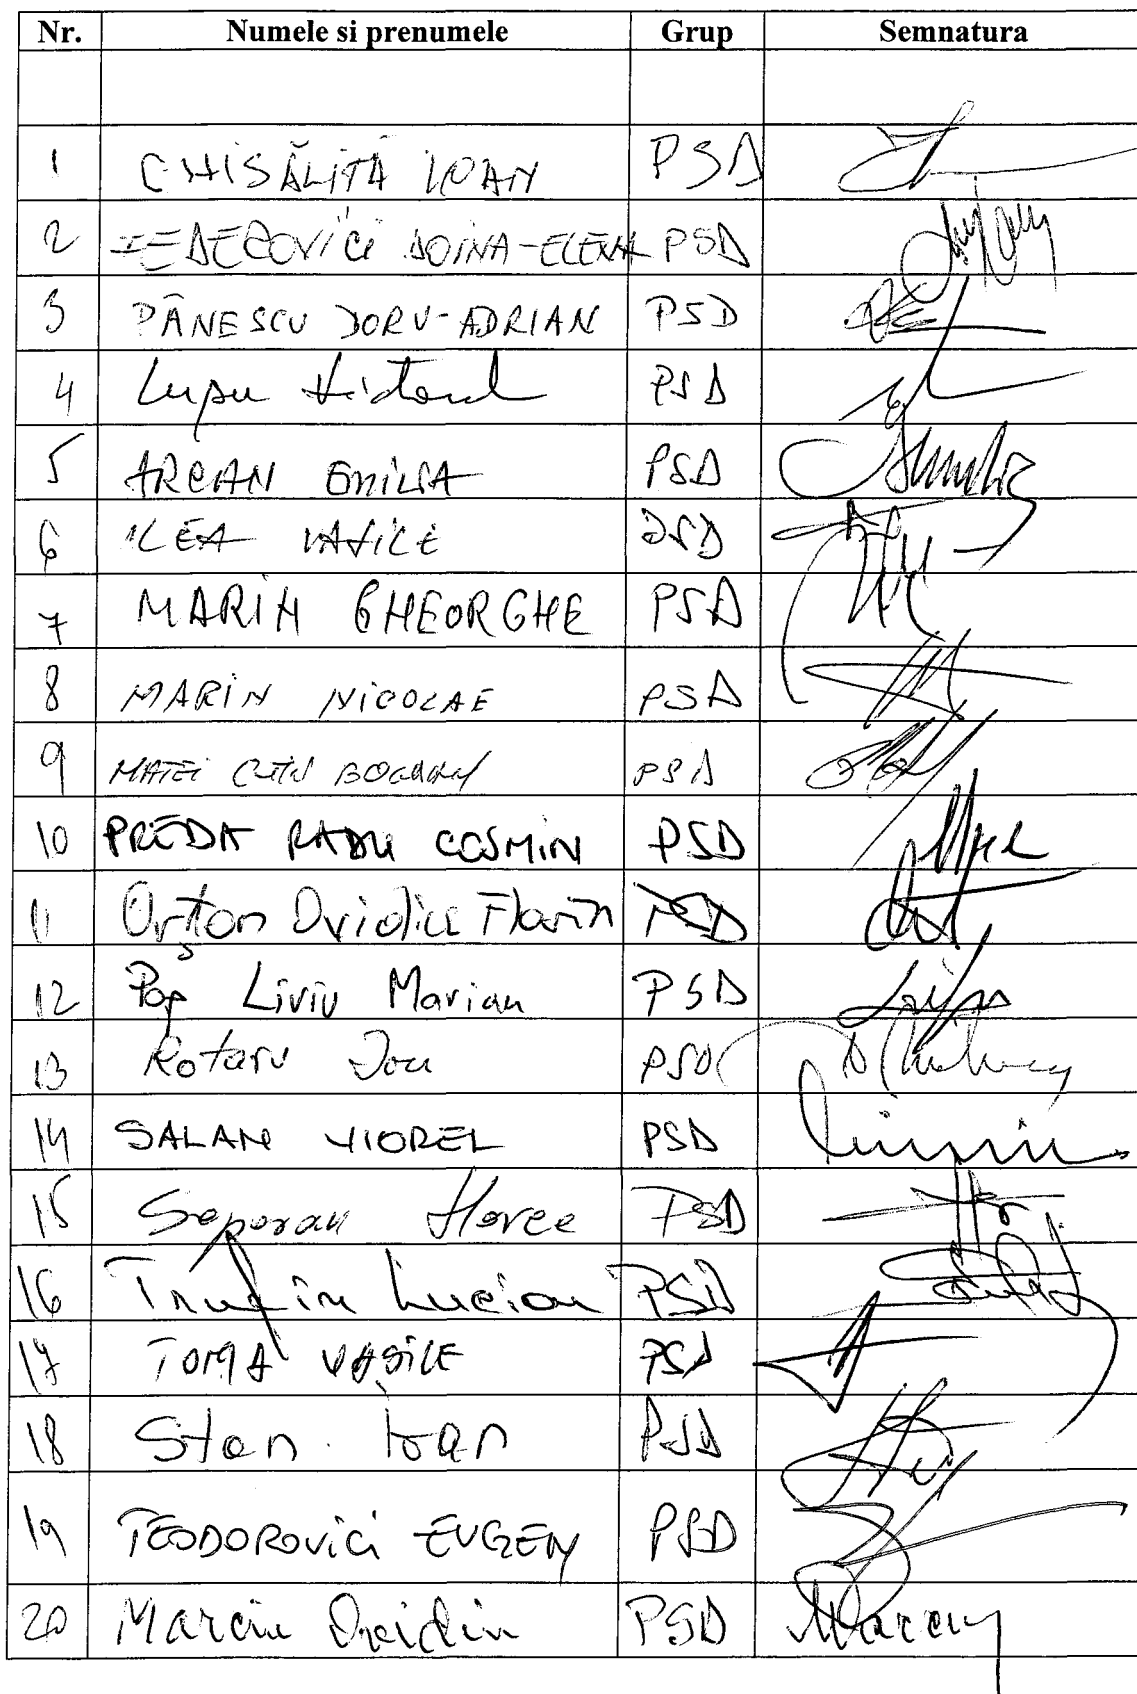 Nr. Numele si prenumele Grup Semnatura
1 CHISĂLIȚĂ IOAN PSD
2 FEDEROVICI DOINA-ELENA PSD
3 PÂNESCU DORU-ADRIAN PSD
4 Lupu PSD
5 ARCAN EMILIA PSD
6 ILEA VASILE PSD
7 MARIN GHEORGHE PSD
8 MARIN NICOLAE PSD
9 MATEI BOGDAN PSD
10 PREDA RADU COSMIN PSD
11 Orțan Ovidiu Florin
12 Pop Liviu Marian PSD
13 Rotaru Ion PSD
14 SALAN VIOREL PSD
15 Soporan PSD
16 Trufin Lucian PSD
17 TOMA VASILE PSD
18 Stan Ioan PSD
19 TEODOROVICI EUGEN PSD
20 Marciu Ovidiu PSD